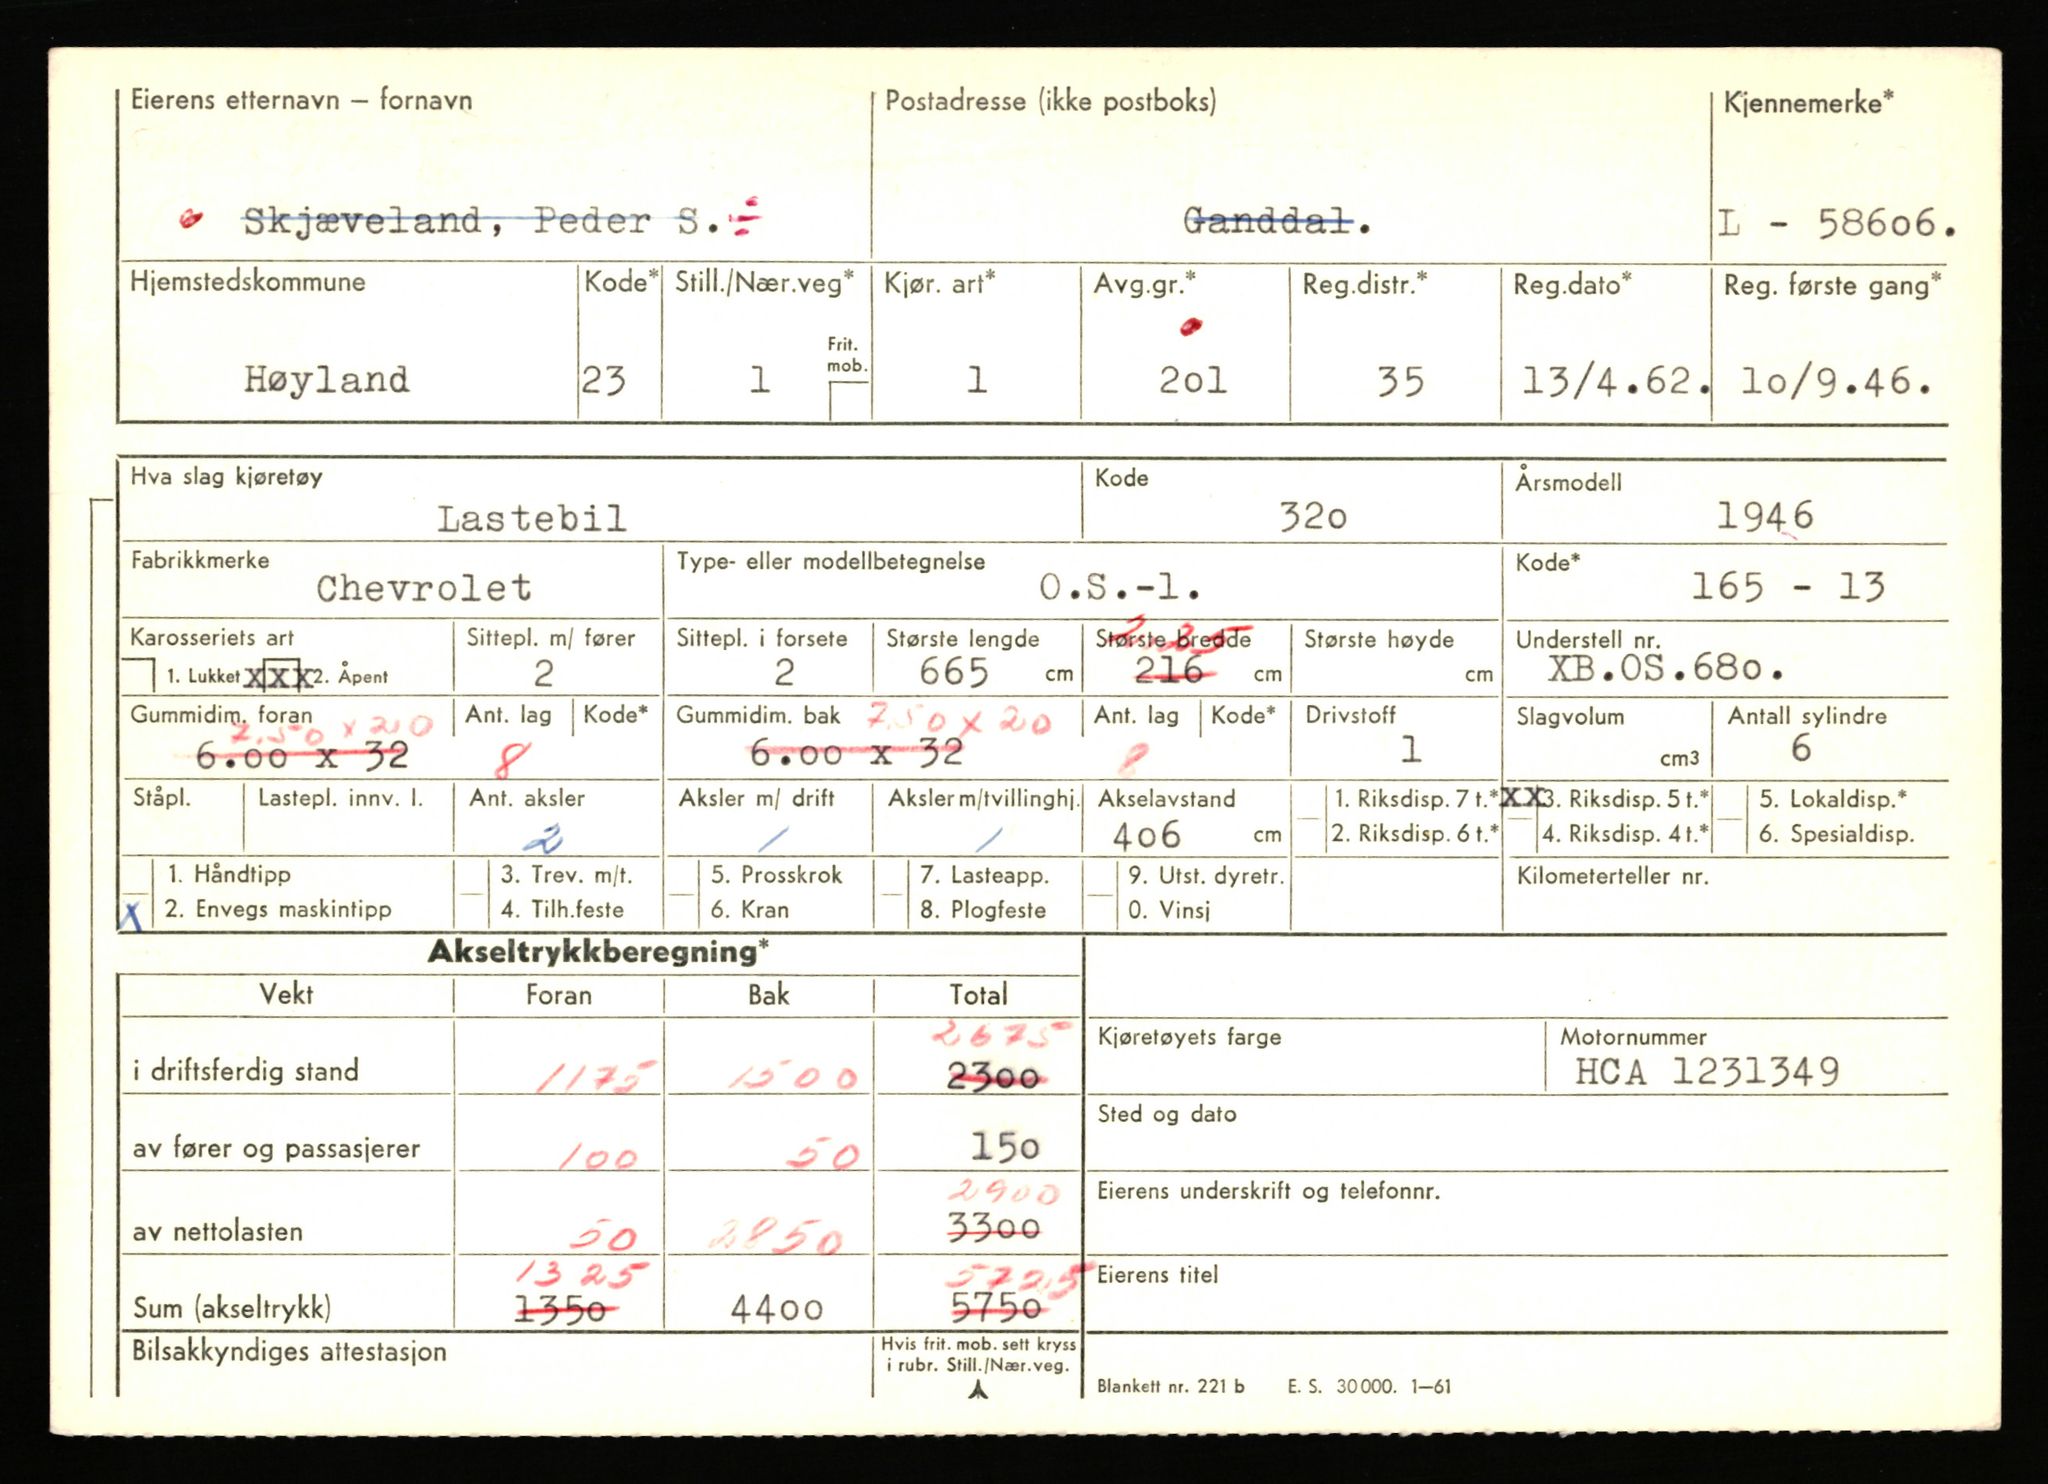 Eierens etternavn – fornavn Postadresse (ikke postboks) Kjennemerke*
Skjæveland, Peder S. Ganddal. L - 58606.
Hjemstedskommune Kode* Still./Nær.veg* Kjør. art* Avg.gr.* Reg.distr.* Reg.dato* Reg. første gang*
Frit.
mob.
Høyland 23 1 1 201 35 13/4.62. 10/9.46.
Hva slag kjøretøy Kode Årsmodell
Lastebil 320 1946
Fabrikkmerke Type- eller modellbetegnelse Kode*
Chevrolet O.S.-1. 165 - 13
Karosseriets art Sittepl. m/ fører Sittepl. i forsete Største lengde Største bredde Største høyde Understell nr.
2.25
1. Lukket XXX 2. Åpent 2 2 665 cm 216 cm cm XB.OS.680.
Gummidim. foran Ant. lag Kode* Gummidim. bak Ant. lag Kode* Drivstoff Slagvolum Antall sylindre
7.50 x 20 7.50 x 20
6.00 x 32 8 6.00 x 32 8 1 cm3 6
Ståpl. Lastepl. innv. l. Ant. aksler Aksler m/ drift Aksler m/tvillinghj. Akselavstand 1. Riksdisp. 7 t.* XX 3. Riksdisp. 5 t.* 5. Lokaldisp.*
2 1 1 406 cm 2. Riksdisp. 6 t.* 4. Riksdisp. 4 t.* 6. Spesialdisp.
1. Håndtipp 3. Trev. m/t. 5. Prosskrok 7. Lasteapp. 9. Utst. dyretr. Kilometerteller nr.
X 2. Envegs maskintipp 4. Tilh.feste 6. Kran 8. Plogfeste 0. Vinsj
Akseltrykkberegning*
Vekt Foran Bak Total
2675
i driftsferdig stand 1175 1500 2300
Kjøretøyets farge Motornummer
HCA 1231349
av fører og passasjerer 100 50 150
Sted og dato
2900
av nettolasten 50 2850 3300
Eierens underskrift og telefonnr.
1325 5725
Sum (akseltrykk) 1350 4400 5750
Eierens titel
Bilsakkyndiges attestasjon
Hvis frit. mob. sett kryss
i rubr. Still./Nær.veg.
Blankett nr. 221 b E. S. 30 000. 1–61